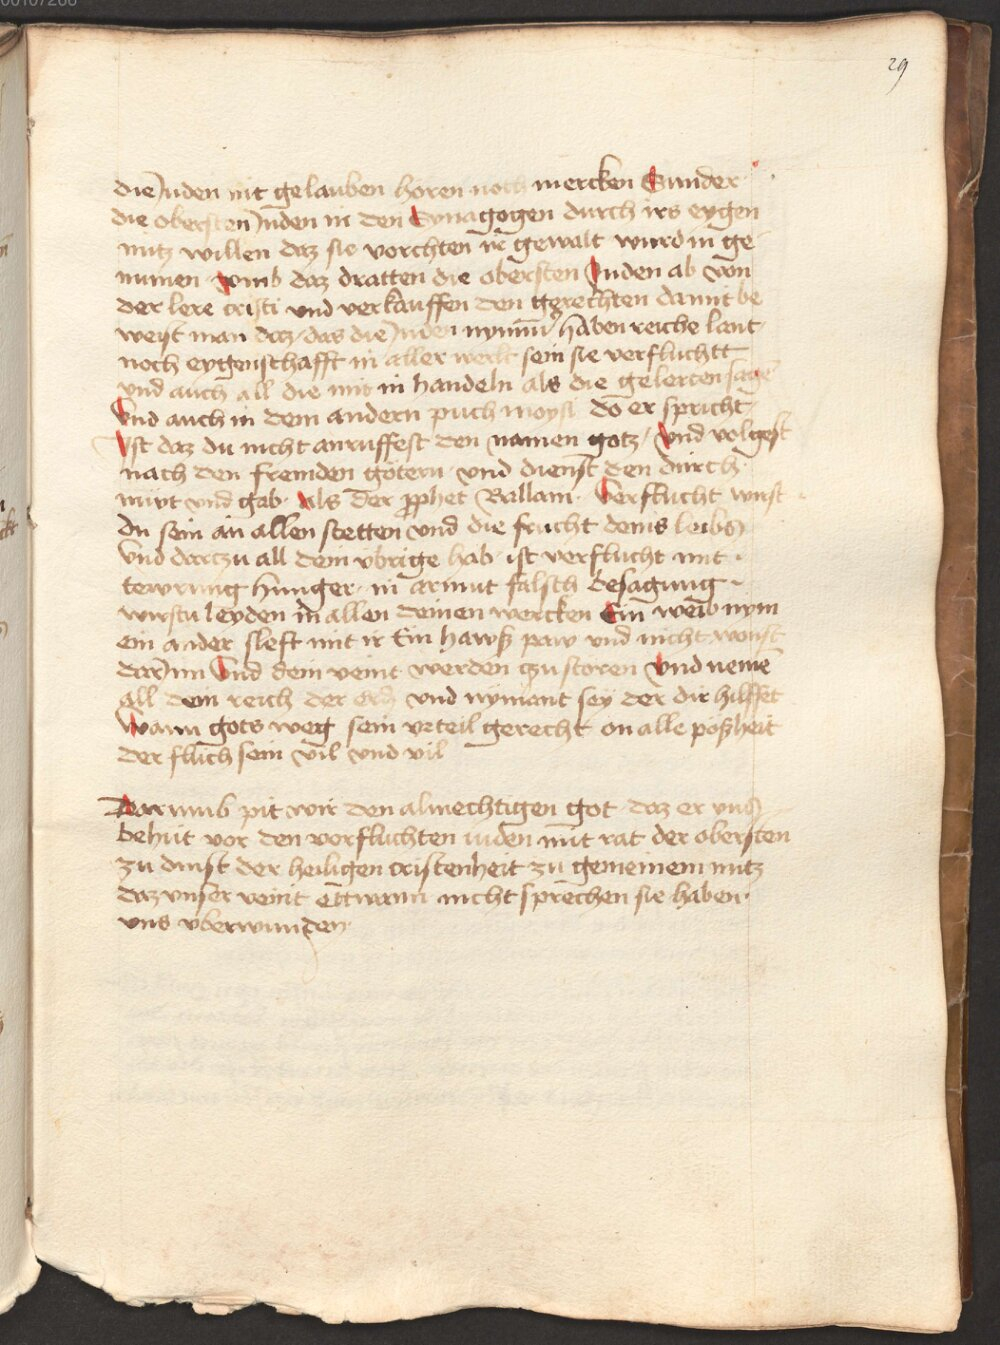 29
die Juden nit gelauben horen noch mercken Sunder
die obersten Juden in den Synagogen durch irs eygen
nutz willen daz sie vorchten ir gewalt wurd in ge
numen vmb daz dratten die obersten Juden ab von
der lere cristi vnd verkauffen den gerechten damit be
weyst man daz das die Juden nymm̄ haben reiche lant
noch eygenschafft in aller werlt sein sie verfluchtt
vnd auch all die mit in handeln als die gelerten sagē
Vnd auch in dem andern puch moysi do er spricht
Ist daz du nicht anruffest den namen gotz / vnd volgest
nach den fremden götern vnd dienst den durch
miet vnd gab Als der ꝓphet Ballam Verflucht wirst
du sein an allen stetten vnd die frucht deins leibs
Vnd dartzu all dein vbrige hab ist verflucht mit
tewrung hunger in armut falsch besagung
wirstu leyden in allen deinen wercken Ein weib nym
ein ander sleft mit ir Ein hawß paw vnd nicht wonst
darInn Vnd dein veint werden tzu storen Vnd nemē
all dein reich der erd vnd nymant sey der dir hilffet
Wann gots weg sein vrteil gerecht on alle poßheit
der fluch sein vil vnd vil
Darumb pit wir den almechtigen got daz er vns
behüt vor den verfluchten iuden mit rat der obersten
zu dinst der heiligen cristenheit zu gemeinem nutz
daz vnser veint ettwann nicht sprechen sie haben
vns vberwunden